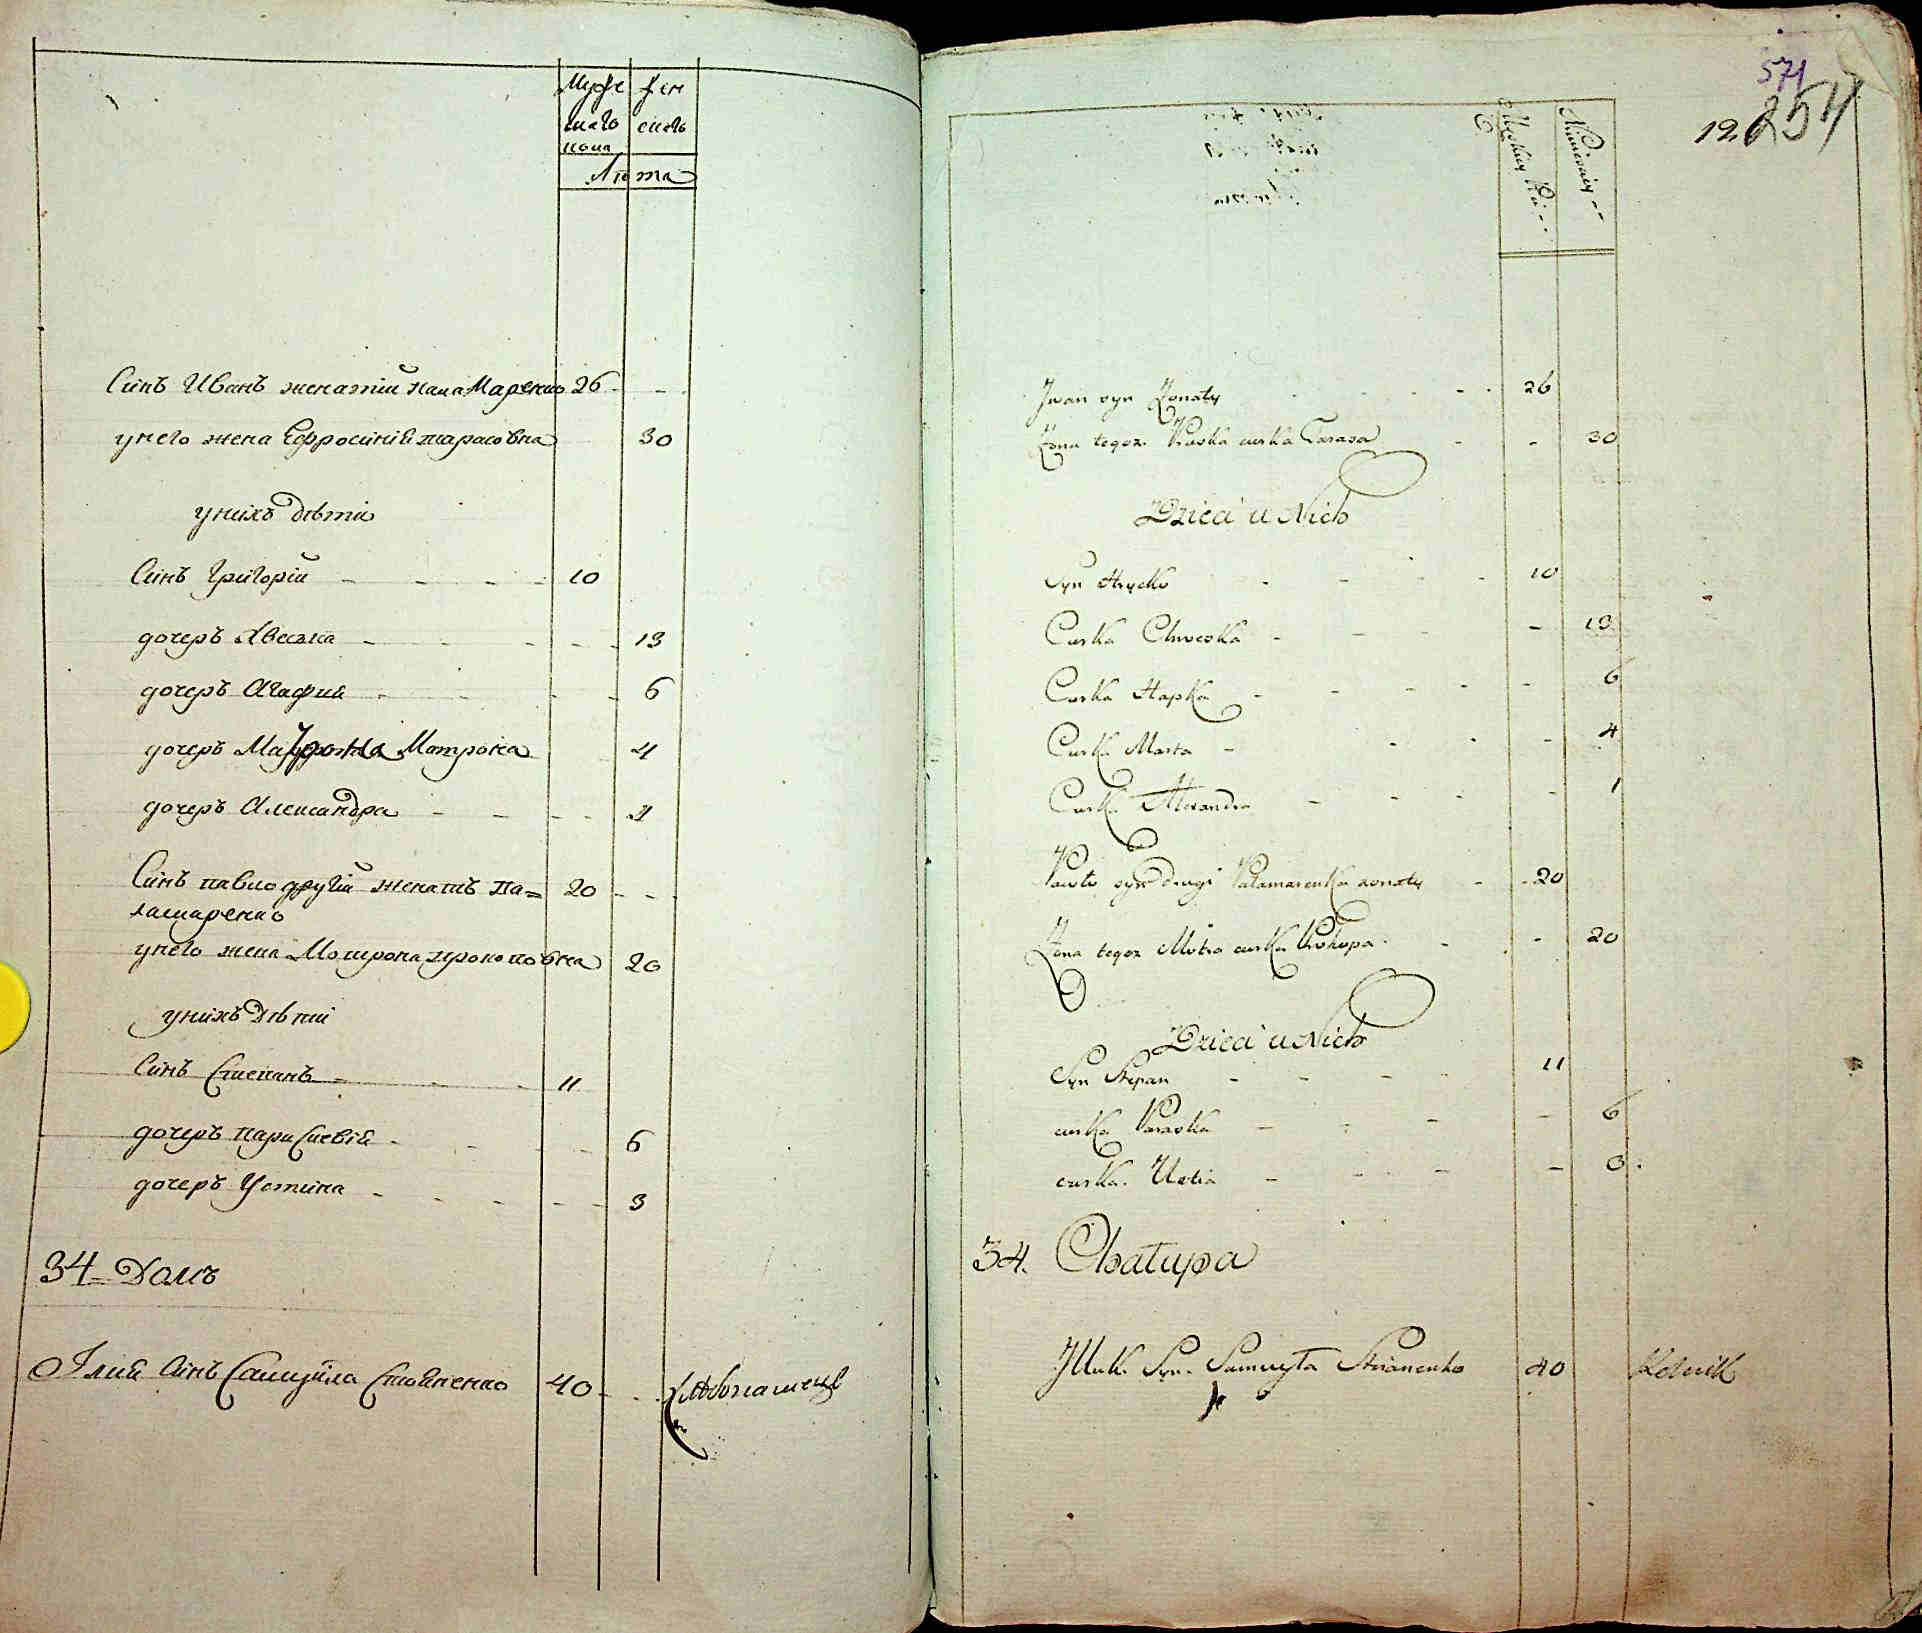 Муже жен
скаго скаго
пола
Лѣта
Синъ Иванъ женатій паламаренко 26
унего жена Ефросинія тарасовна 30
унихъ дѣти
Синъ Григорій 10
дочеръ Хвеска 13
дочеръ Агафия 6
дочеръ Матрона 4
дочеръ Александра 1
Синъ павло другій женатъ па=
ламаренко 20
унего жена Мотрона прокоповна 20
унихъ дѣти
Синъ Степанъ 11
дочеръ параскевія 6
дочеръ Устина 3
34 Домъ
Ілия синъ Самуйла Стояненко 40 хлѣбопашецъ
571
254
126
Jwan syn Żonaty 26
Żona tegoz Pruska curka Tarasa 30
Dzieci u Nich
Syn Hrycko 10
Curka Chweska 13
Curka Hapka 6
Curka Marta 4
Curka Alexandra 1
Pawło syn drugi Pałamarenko zonaty 20
Żona tegoz Motra curka Prokopa 20
Dzieci u Nich
Syn Stepan 11
curka Paraska 6
curka Ustia 3
34. Chałupa
Jlluk Syn Samuyła Stoianenko 40 Rolnik